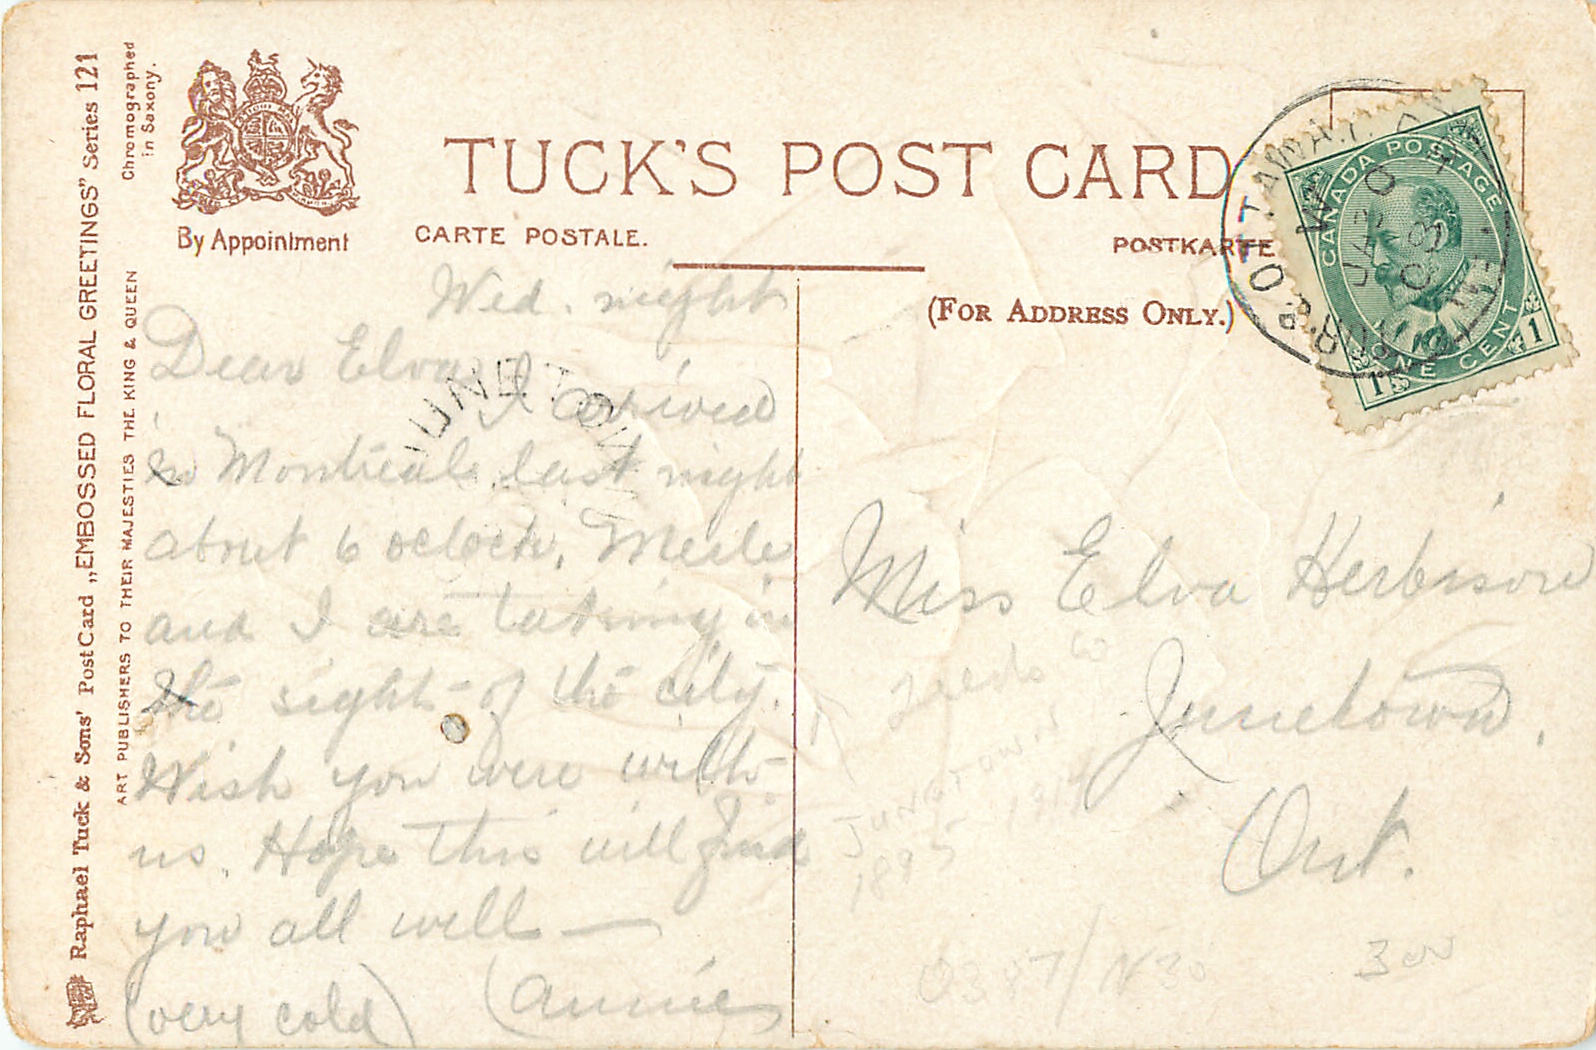 Raphael Tuck & Sons' Post Card „EMBOSSED FLORAL GREETINGS" Series 121
ART PUBLISHERS TO THEIR MAJESTIES THE KING & QUEEN
Chromographed
in Saxony.
By Appointment
TUCK'S POST CARD
CARTE POSTALE.
POSTKARTE
(FOR ADDRESS ONLY.)
CANADA POSTAGE
1 ONE CENT 1
OTTAWA
JA 2
08
JUNETOWN
Wed. night
Dear Elva
I arrived
in Montreal last night
about 6 oclock.
and I are taking in
the sight of the city.
Wish you were with
us. Hope this will find
you all well —
(very cold) (Annie
Miss Elva Herbison
Junetown.
Ont.
Leeds Co
JUNETOWN
1895 1914
0387/N30
300